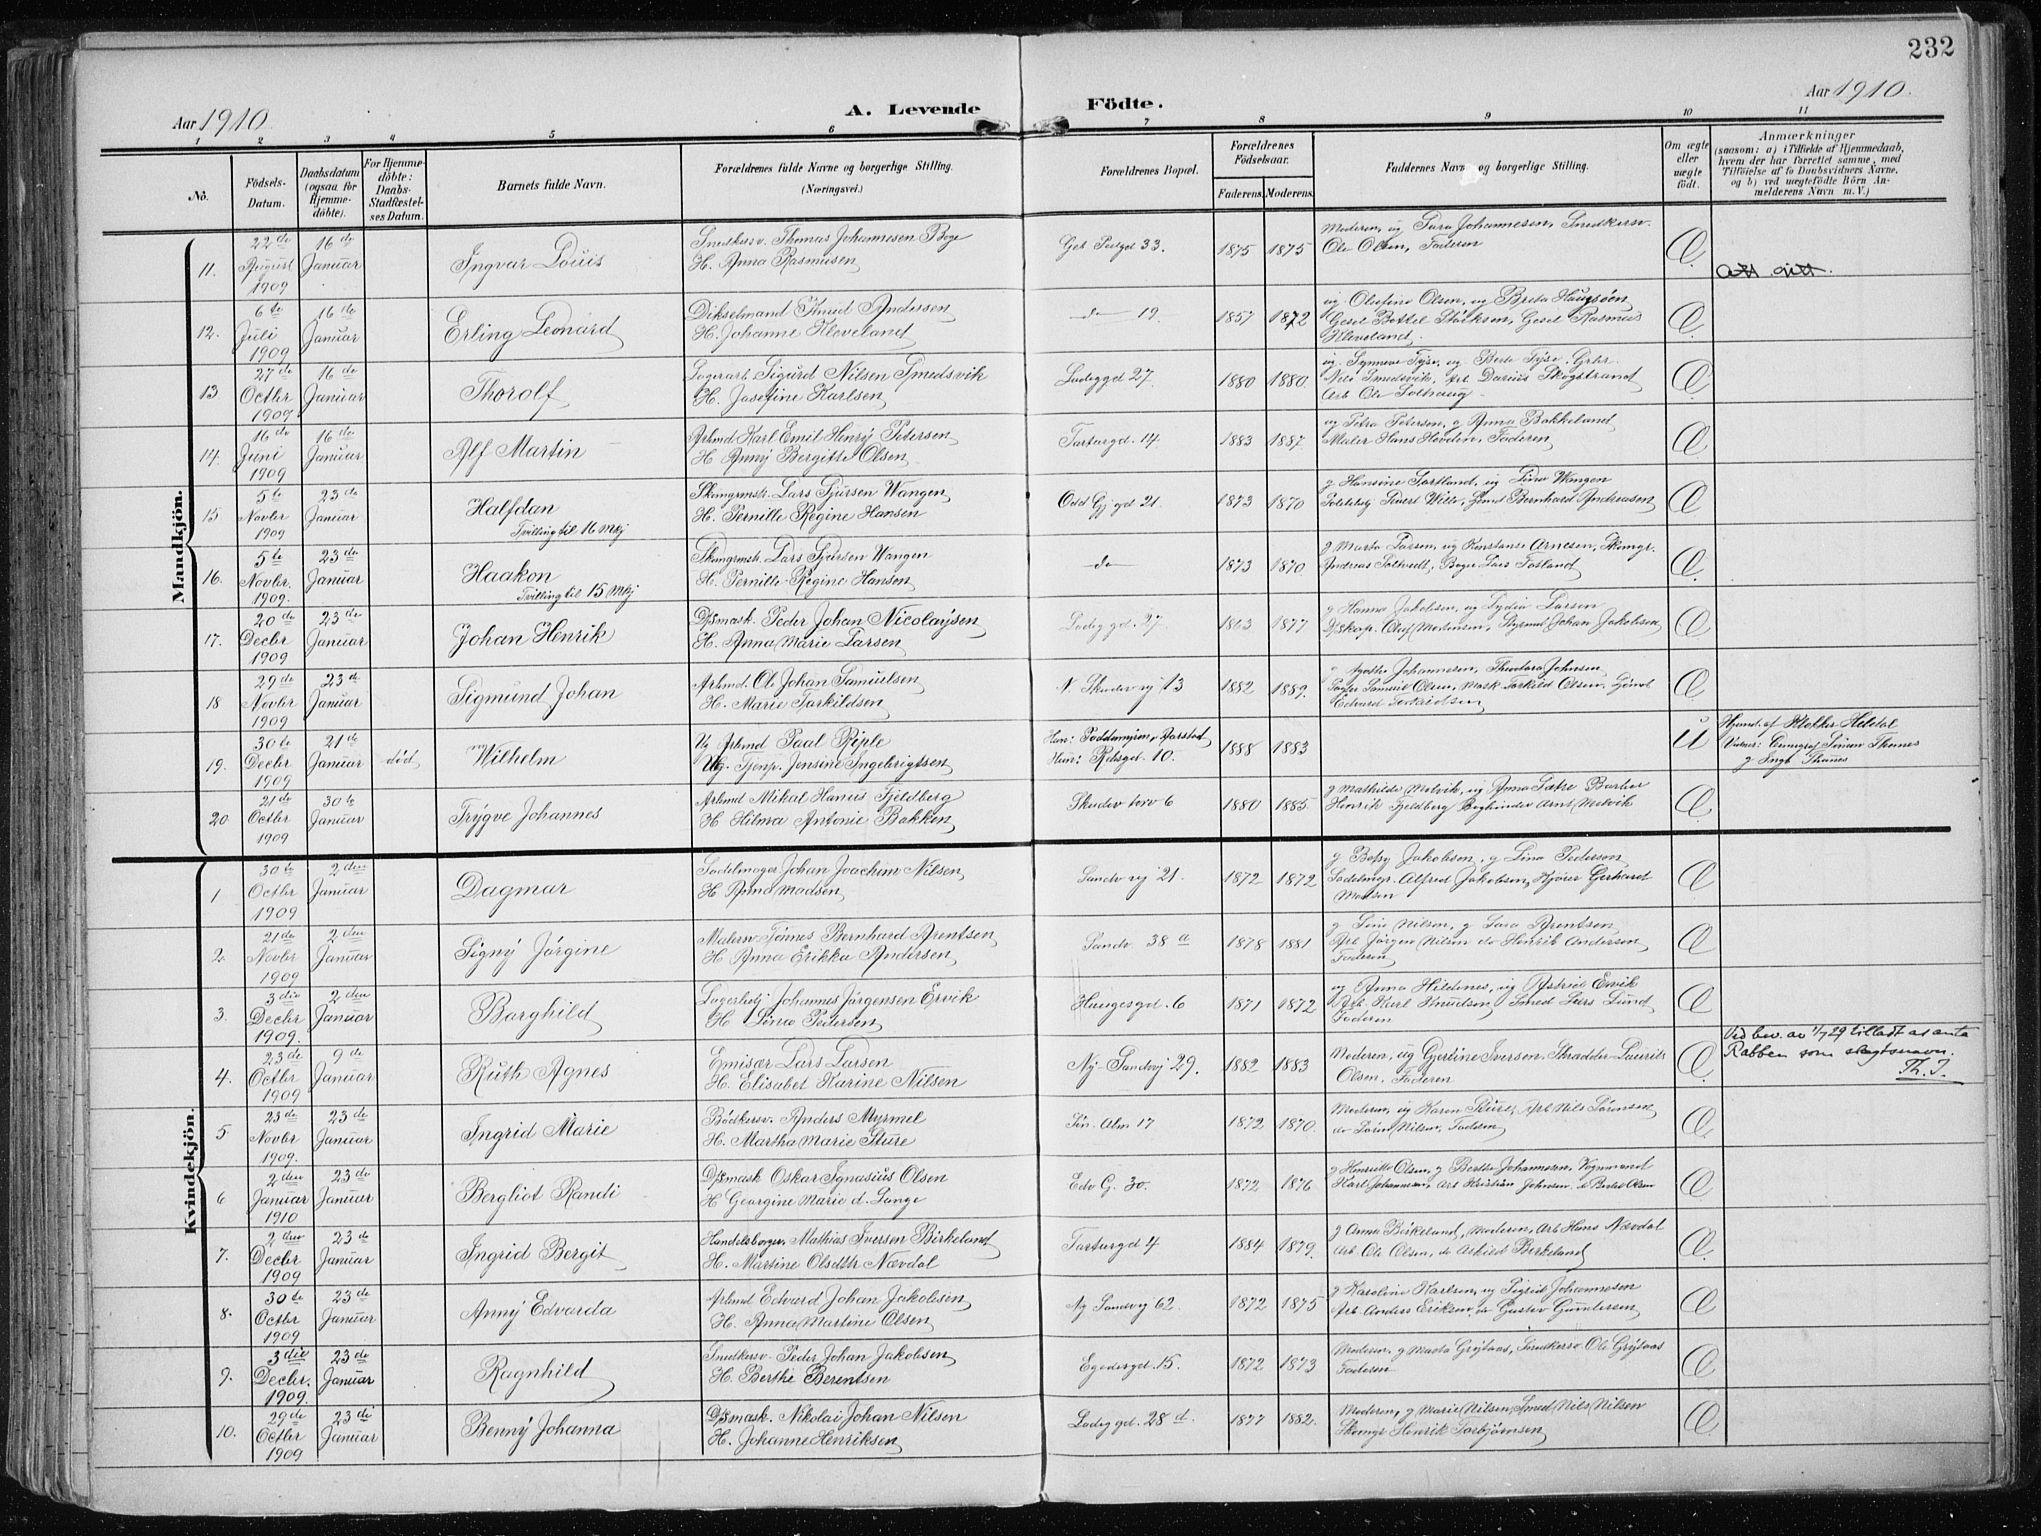 232
Aar 1910.
A. Levende Födte.
Aar 1910.
1 2 3 4 5 6 7 8 9 10 11
No.
Födsels-Datum.
Daabsdatum (ogsaa for Hjemmedöbte).
For Hjemmedöbte: Daabs-Stadfæstelses Datum.
Barnets fulde Navn.
Forældrenes fulde Navne og borgerlige Stilling.
(Næringsvei.)
Forældrenes Bopæl.
Forældrenes Födselsaar.
Faderens. Moderens.
Faddernes Navn og borgerlige Stilling.
Om ægte eller uægte födt.
Anmærkninger
(saasom: a) i Tilfælde af Hjemmedaab,
hvem der har forrettet samme, med
Tilföielse af to Daabsvidners Navne.
og b) ved uægtefödte Börn Anmelderens Navn m. V.)
Mandkjön.
11. 22de August 1909 16de Januar Ingvar Louis
Snedkersv. Thomas Johannesen Boge
H. Anna Rasmusen
33. 1875 1875
Moderen, ug Sara Johannesen, Snedkersv.
Ole Olsen, Faderen
Æ
Att. gitt.
12. 6te Juli 1909 16de Januar Erling Leonard
Dikselmand Knud Andersen
H. Johanne Kleveland
do 19 1857 1872
ug Olufine Olsen, ug Breta Haugsöen
Kleveland
Æ
13 27de Octbr 1909 16de Januar Thorolf
Lagerarb. Sigurd Nilsen Smedsvik
H. Josefine Karlsen
Ladeggd 27. 1880 1880.
Nils Smedsvik, Arb. Darius Skogstrand
Arb Ole Solhaug
Æ
14. 16de Juni 1909 16de Januar Alf Martin
Arbmd Karl Emil Henry Petersen
H Anny Bergitte Olsen
Tartargd. 14 1883 1887.
ug Petra Petersen, g Anna Bakkeland
Maler Hans Hevden, Faderen
Æ
15 5te Novbr 1909 23de Januar Halfdan
Tvilling til 16 Mkj
Skomgrmstr. Lars Sjursen Wangen
H. Pernille Regine Hansen
Odd Gj gd 21. 1873 1870
g Hansine Sortland, ug Lina Wangen
Bernhard Andreasen
Æ
16. 5te Novbr. 1909. 23de Januar Haakon
Tvilling til 15 Mkj
Skomgrmstr. Lars Sjursen Wangen
H. Pernille Regine Hansen
do 1873 1870
g Marta Larsen, ug Konstanse Arnesen, Skomgr.
Andreas Toltvedt, Lars Fosland
Æ
17. 20de Decbr 1909 23de Januar Johan Henrik
D/Smask. Peder Johan Nicolaysen
H. Anna Marie Larsen
Ladeggd. 27. 1877
g Hanna Jakobsen, ug Lydia Larsen
D/Skap. Olaf Mortensen, Styrmd Johan Jakobsen
Æ
18 29de Novbr 1909 23de Januar Sigmund Johan
Arbmd. Ole Johan Samuelsen
H. Marie Torkildsen
N. Skudevj 13 1882 1889.
Johannesen, Theodora Johnsen
Samuel Olsen, Mask. Torkild Olsen,
Edvard Torkildsen
Æ
19. 30te Decbr 1909 21de Januar död Wilhelm
Ug. Arbmd Paal Riple
Ug. Tjenp. Jensine Ingebrigtsen
Han: Poddemyren, Aarstad
Hun: Rdusgd. 10. 1888 1883
U
Hjemd. af Klokker Heldal
g Ingb. Thomes
20 21de Octbr 1909 30te Januar Trygve Johannes
Arbmd Mikal Hanus Fjeldberg
H Hilma Antonie Bakken
Skudev torv 6 1880 1885.
g Mathilde Melvik, ug Anna Sætre
Henrik Fjeldberg Arnt Melvik
Æ
Kvindekjön.
1 30te Octbr 1909 2den Januar Dagmar
Sadelmager Johan Joachim Nilsen
H Anna Madsen
Sandv vj 21. 1872 1872
g Betsy Jakobsen, g Lina Pederson
Sadelmgr. Alfred Jakobsen, Kjörer Gerhardt
Madsen
Æ
2. 21de Novbr 1909 2den Januar Signy Jörgine
Malersv Tönnes Bernhard Arentsen
H Anna Erikka Andersen
Sandv. 38 a 1878 1881
g Lina Nilsen, g Sara Arentsen
Arb Jörgen Nilsen do Henrik Andersen
Faderen
Æ
3. 3die Decbr 1909. 2den Januar Borghild
Lagerbetj. Johannes Jörgensen Ervik
H Lina Pedersen
Haugesgd. 6 1871 1872
ug Anna Hildenes, ug Astrid Ervik
Arb. Karl Knudsen, Smed Lars Lund
Faderen
Æ
4. 23de Octbr 1909 9de Januar Ruth Agnes
Emisær Lars Larsen
H. Elisabet Karine Nilsen
Ny-Sandvj 29. 1882 1883
Moderen, ug Gjertine Iversen, Skrædder Laurits
Olsen, Faderen
Æ
Ved bev. av 1/7 29 tilladt at anta
Rabben som slegtsnavn.
Th. J.
5 23de Novbr 1909. 23de Januar Ingrid Marie
Bödkersv. Anders Myrmel
H. Martha Marie Sture
Sön. Alm 17 1872 1870.
Moderen, ug Karen Sture, Arb Nils Sörensen
do Sören Nilsen, Faderen
Æ
6 2den Januar 1910 23de Januar Bergliot Randi
D/Smask Oskar Ignasius Olsen
H Georgine Marie d. Lange
Edv G. 30. 1872 1876
g Henriette Olsen, g Berthe Johannesen, Vognmand
Karl Johannesen, Arb Kristian Johnsen, do Bertel Olsen
Æ
7. 2den Decbr 1909 23de Januar Ingrid Bergit
Handelsborger Mathias Iversen Birkeland
H. Martine Olsdttr Nævdal
Tartargd 4 1884 1879.
g Anna Birkeland, Moderen, Arb Hans Nævdal
Arb. Ole Olsen, do Askild Birkeland
Æ
8. 30te Octbr 1909 23de Januar Anny Edvarda
Arbmd Edvard Johan Jakobsen
H. Anna Martine Olsen
Ny Sandvj 62 1872 1875
g Karoline Karlsen, ug Sigrid Johannesen
Arb. Anders Eriksen, do Gustav Gundersen
Æ
9. 3die Decbr. 1909. 23de Januar Ragnhild
Snedkersv Peder Johan Jakobsen
H. Berthe Berentsen
Egedesgd. 15. 1872 1873
Moderen, g Marta Grytaas, Snedkersv Ole Grytaas
Faderen
Æ
10. 29de Octbr 1909 23de Januar Benny Johanna
D/Smask. Nikolai Johan Nilsen
H. Johanne Henriksen
Ladeggd. 28 d. 1877 1882.
Moderen, g Marie Nilsen, Smed Nils Nilsen
Skomgr Henrik Torbjörnsen
Æ